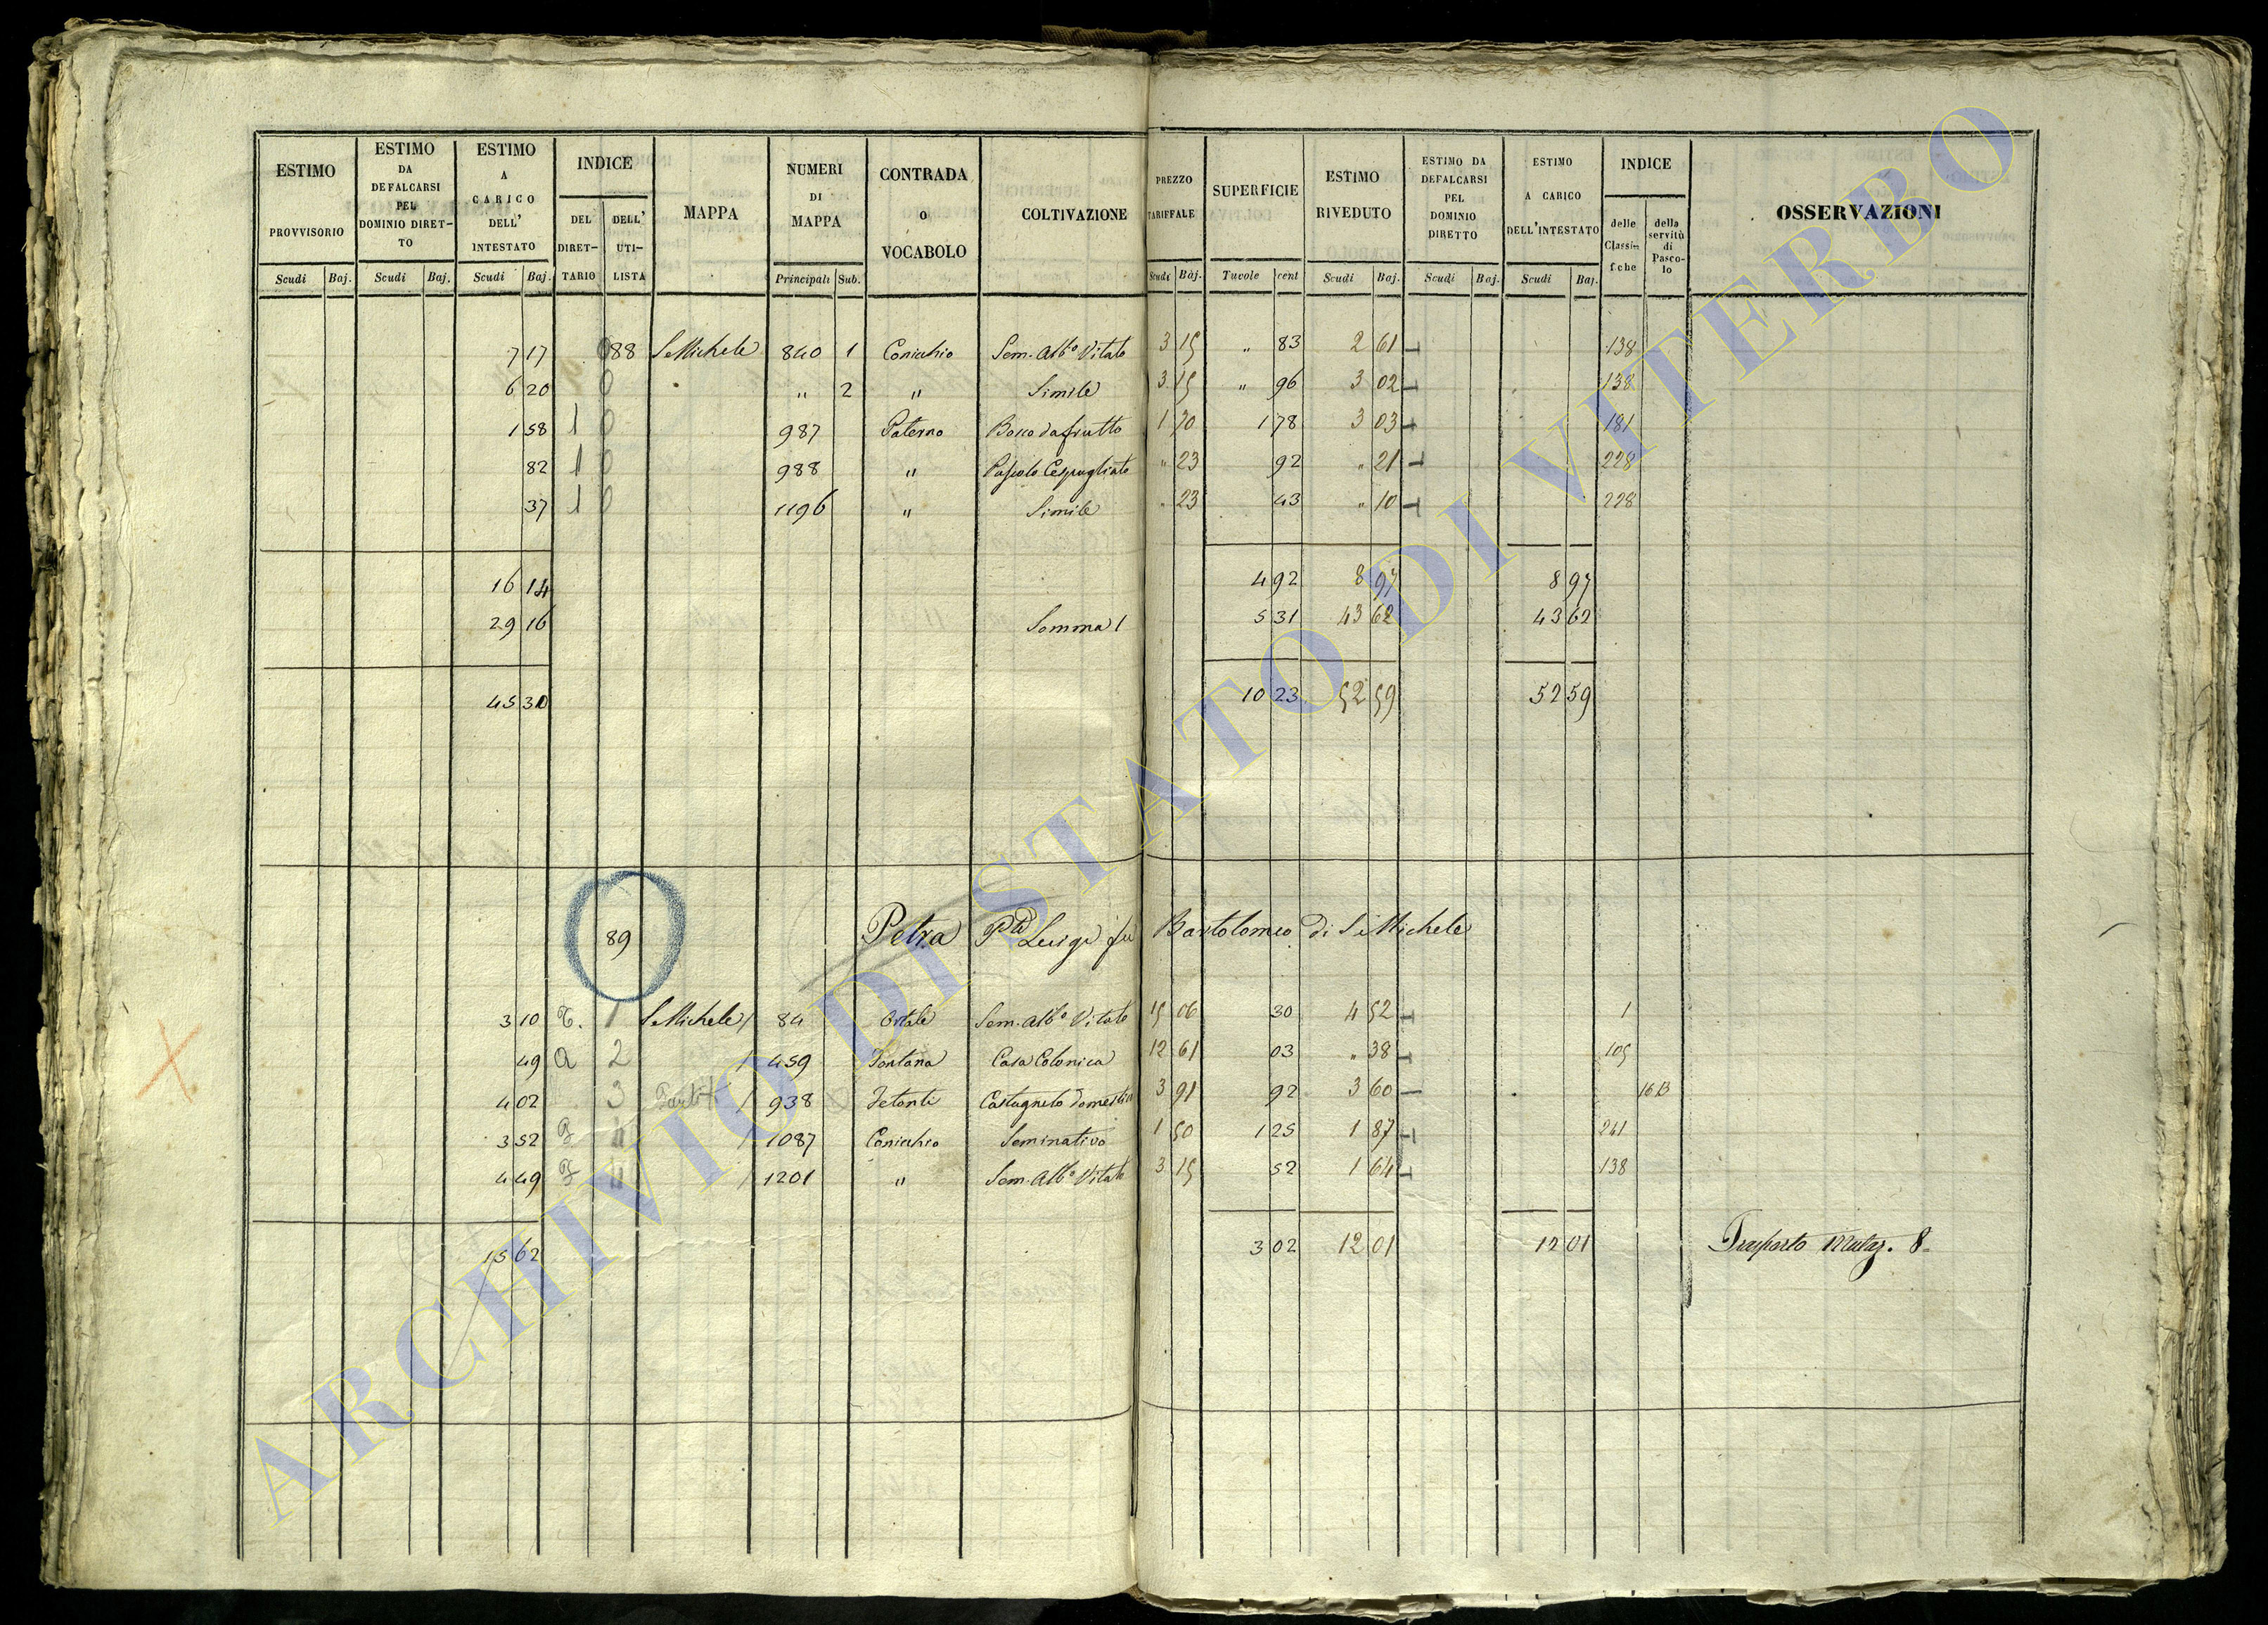 ESTIMO PROVVISORIO
Scudi Baj.
ESTIMO DA DEFALCARSI PEL DOMINIO DIRET-TO
Scudi Baj.
ESTIMO A CARICO DELL' INTESTATO
Scudi Baj.
INDICE
DEL DIRET-TARIO
DELL' UTI-LISTA
MAPPA
NUMERI DI MAPPA
Principali Sub.
CONTRADA O VOCABOLO
COLTIVAZIONE
PREZZO TARIFFALE
Scudi Baj.
SUPERFICIE
Tavole cent
ESTIMO RIVEDUTO
Scudi Baj.
ESTIMO DA DEFALCARSI PEL DOMINIO DIRETTO
Scudi Baj.
ESTIMO A CARICO DELL'INTESTATO
Scudi Baj.
INDICE
delle Classifiche
della servitù di Pascolo
OSSERVAZIONI
7 17 88 S. Michele 840 1 Conicchio Sem. Alb.o Vitato 3 15 " 83 2 61 138
6 20 0 " 2 " Simile 3 15 " 96 3 02 138
1 58 1 0 987 Paterno Bosco da frutto 1 70 1 78 3 03 181
82 1 0 988 " Pascolo Cespugliato " 23 92 " 21 228
37 1 0 1196 " Simile " 23 43 " 10 228
16 14 4 92 8 97 8 97
29 16 Somma 1 5 31 43 62 43 62
45 30 10 23 52 59 52 59
89 Petra Luigi fu Bartolomeo di S. Michele
3 10 1 S. Michele 84 Ortale Sem. Alb.o Vitato 15 06 30 4 52 1
49 a 2 459 Fontana Casa Colonica 12 61 03 " 38 105
4 02 3 938 Castagneto domestico 3 91 92 3 60 16 B
3 52 4 1087 Conicchio Seminativo 1 50 1 25 1 87 241
4 49 4 1201 " Sem. Alb.o Vitato 3 15 52 1 64 138
15 62 3 02 12 01 12 01 Trasporto Mutaz. 8
ARCHIVIO DI STATO DI VITERBO